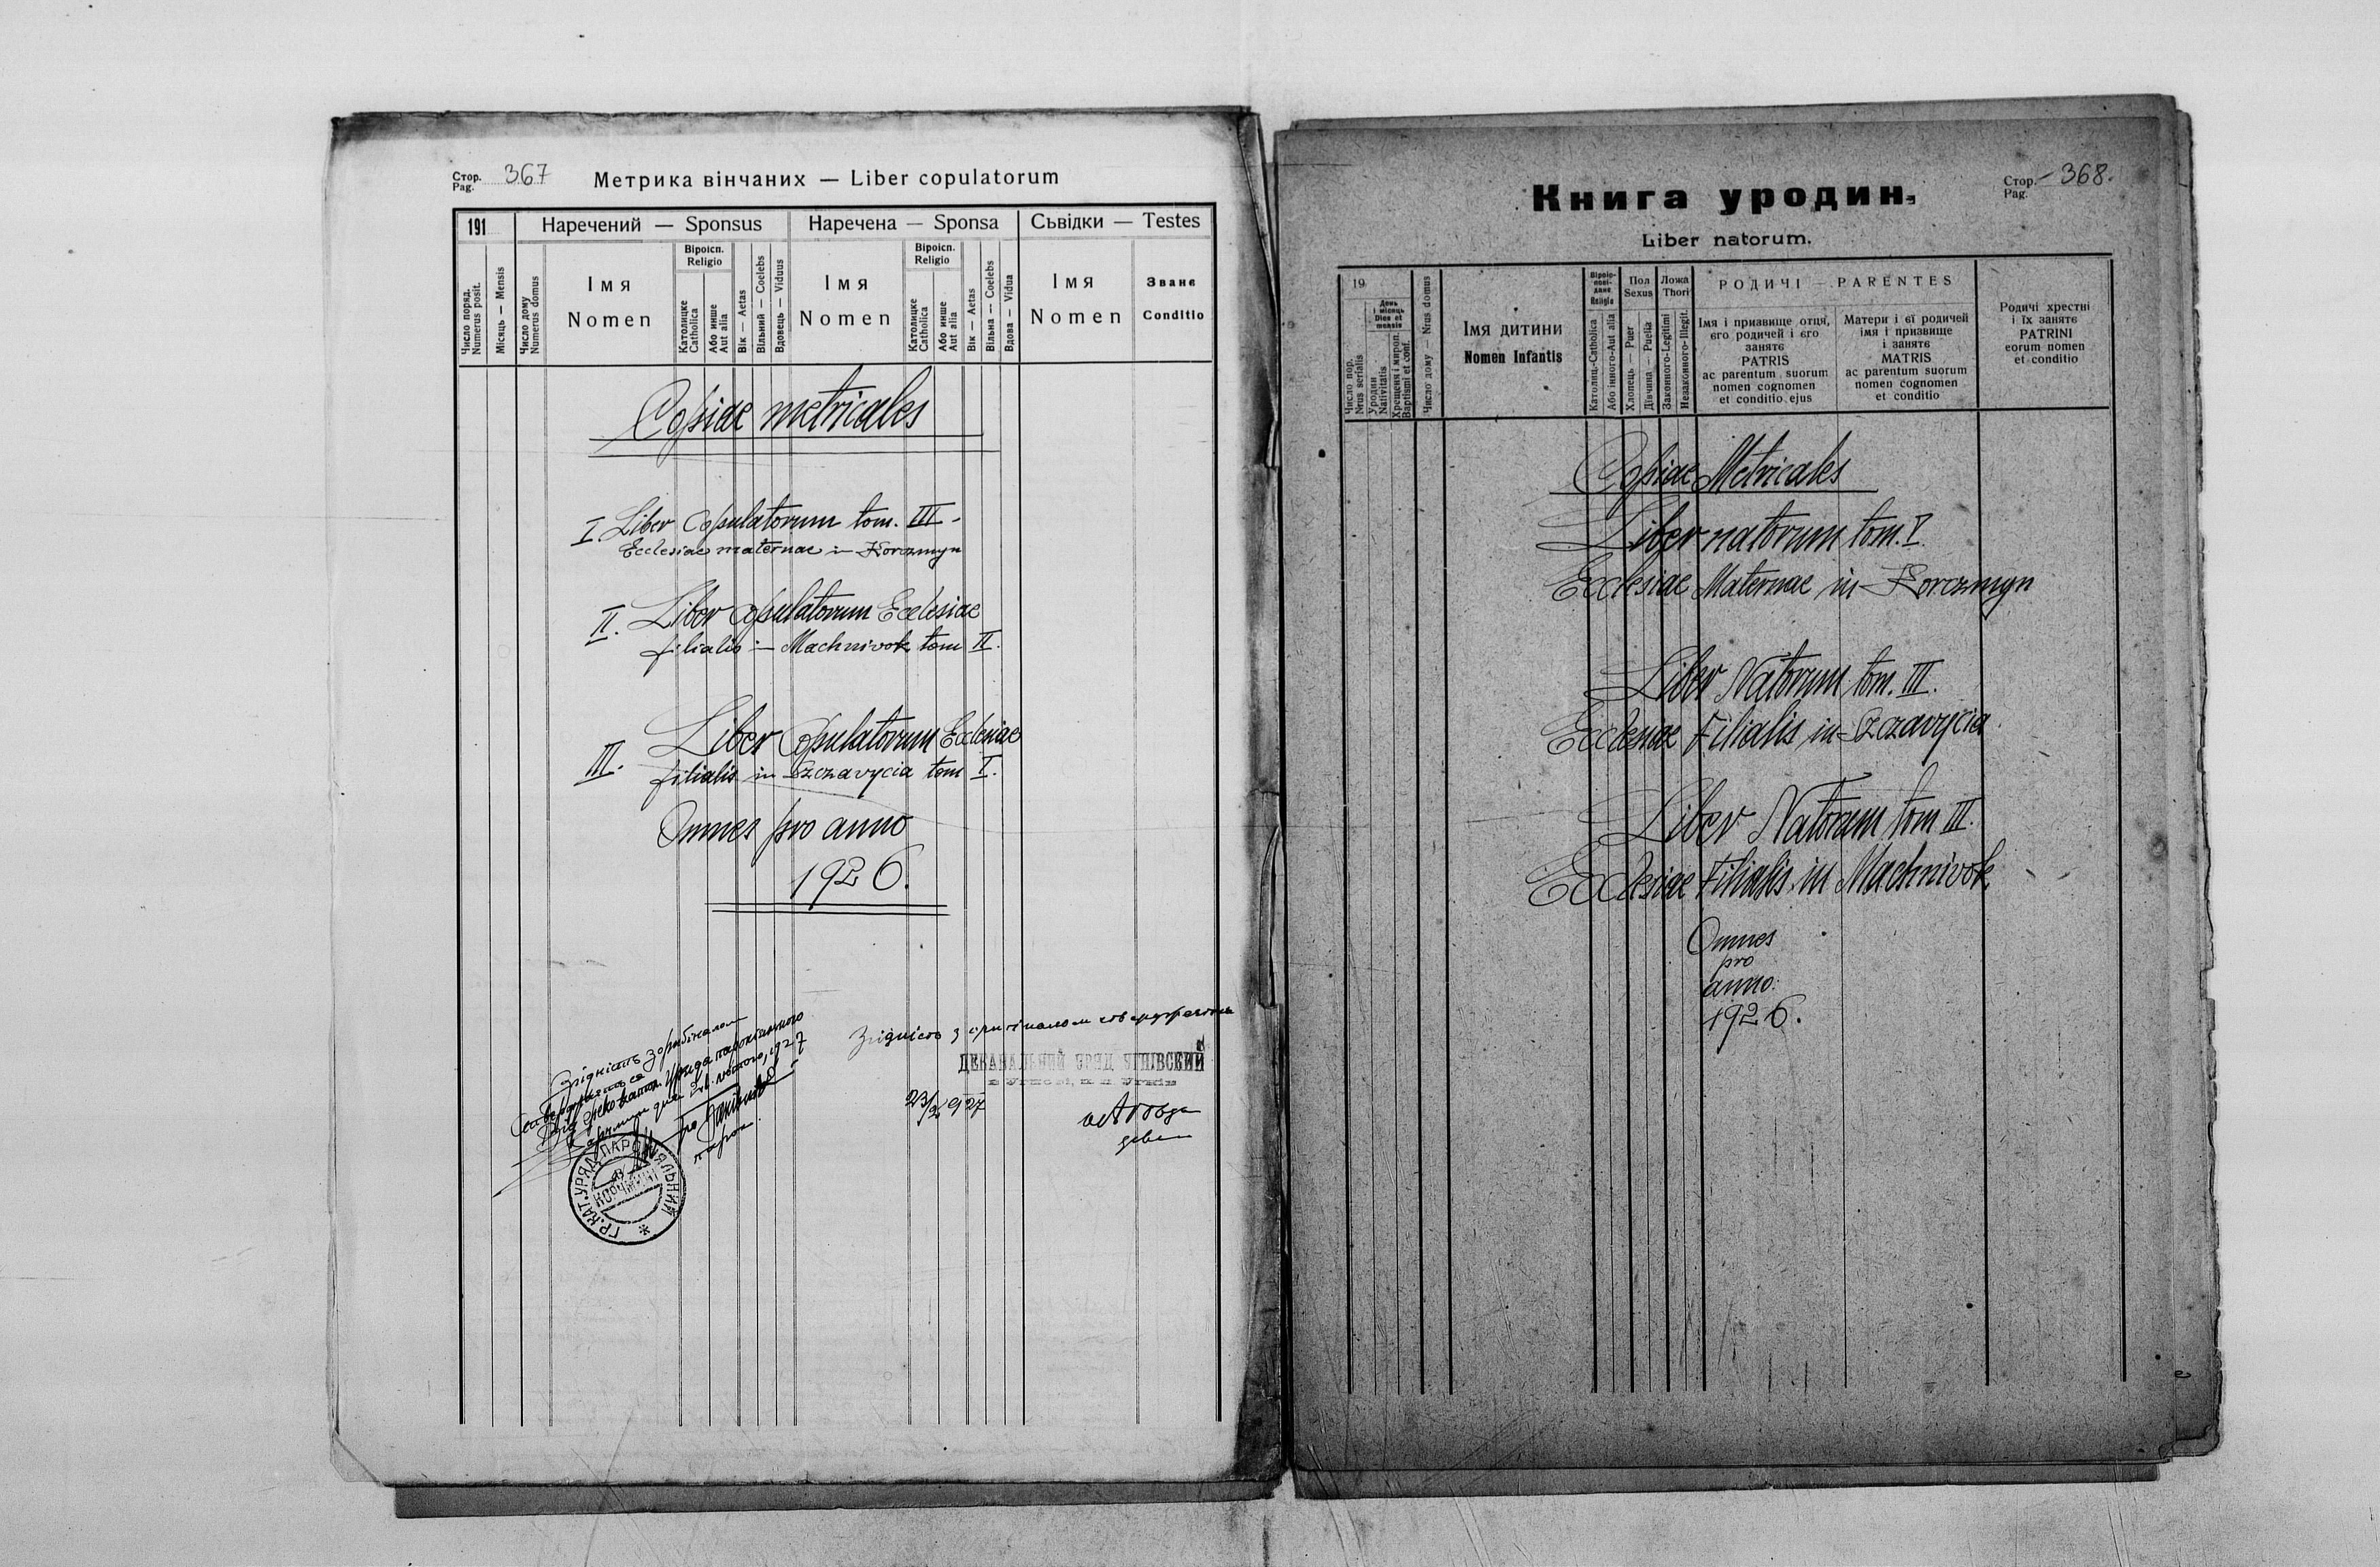 Стор. Pag. 367
Метрика вінчаних — Liber copulatorum
191
Наречений — Sponsus
Наречена — Sponsa
Сьвідки — Testes
Число поряд. Numerus posit.
Місяць — Mensis
Число дому Numerus domus
Імя
Nomen
Віроісп.
Religio
Католицке Catholica
Або инше Aut alia
Вік — Aetas
Вільний — Coelebs
Вдовець — Viduus
Імя
Nomen
Віроісп.
Religio
Католицке Catholica
Або инше Aut alia
Вік — Aetas
Вільна — Coelebs
Вдова — Vidua
Імя
Nomen
Званє
Conditio
Copiae metricales
I. Liber Copulatorum tom. III -
Ecclesiae maternae in Korczmyn
II. Liber Copulatorum Ecclesiae
filialis in Machnivok tom II.
III. Liber Copulatorum Ecclesiae
filialis in Szczavycia tom I.
Omnes pro anno
1926.
Згідність з оригіналом
Уряда парохіяльного
лютого, 1927
парох.
ГР.КАТ.УРЯД ПАРОХІЯЛЬНИЙ
Згідність з оригіналом стверджаєть
ДЕКАНАЛЬНИЙ УРЯД УГНІВСКИЙ
23/2 927
декан
Стор. Pag. - 368.
Книга уродин.
Liber natorum.
19
Число пор. Nrus serialis
День і місяць Dies et mensis
Уродин Nativitatis
Хрещеня і миропом. Baptismi et conf.
Число дому — Nrus domus
Імя дитини
Nomen Infantis
Віроісповіданє Religio
Католиц.-Catholica
Або інного-Aut alia
Пол
Sexus
Хлопець — Puer
Дівчина — Puella
Ложа
Thori
Законного-Legitimi
Незаконного-Illegit.
РОДИЧІ — PARENTES
Імя і призвище отця,
єго родичей і єго
занятє
PATRIS
ac parentum suorum
nomen cognomen
et conditio ejus
Матери і єї родичей
імя і призвище
і занятє
MATRIS
ac parentum suorum
nomen cognomen
et conditio
Родичі хрестні
і їх занятє
PATRINI
eorum nomen
et conditio
Copiae Metricales
Liber natorum tom. V.
Ecclesiae Maternae in Korczmyn
Liber Natorum tom. III.
Ecclesiae Filialis in Szczavycia
Liber Natorum tom III.
Ecclesiae Filialis in Machnivok
Omnes
pro
anno:
1926.